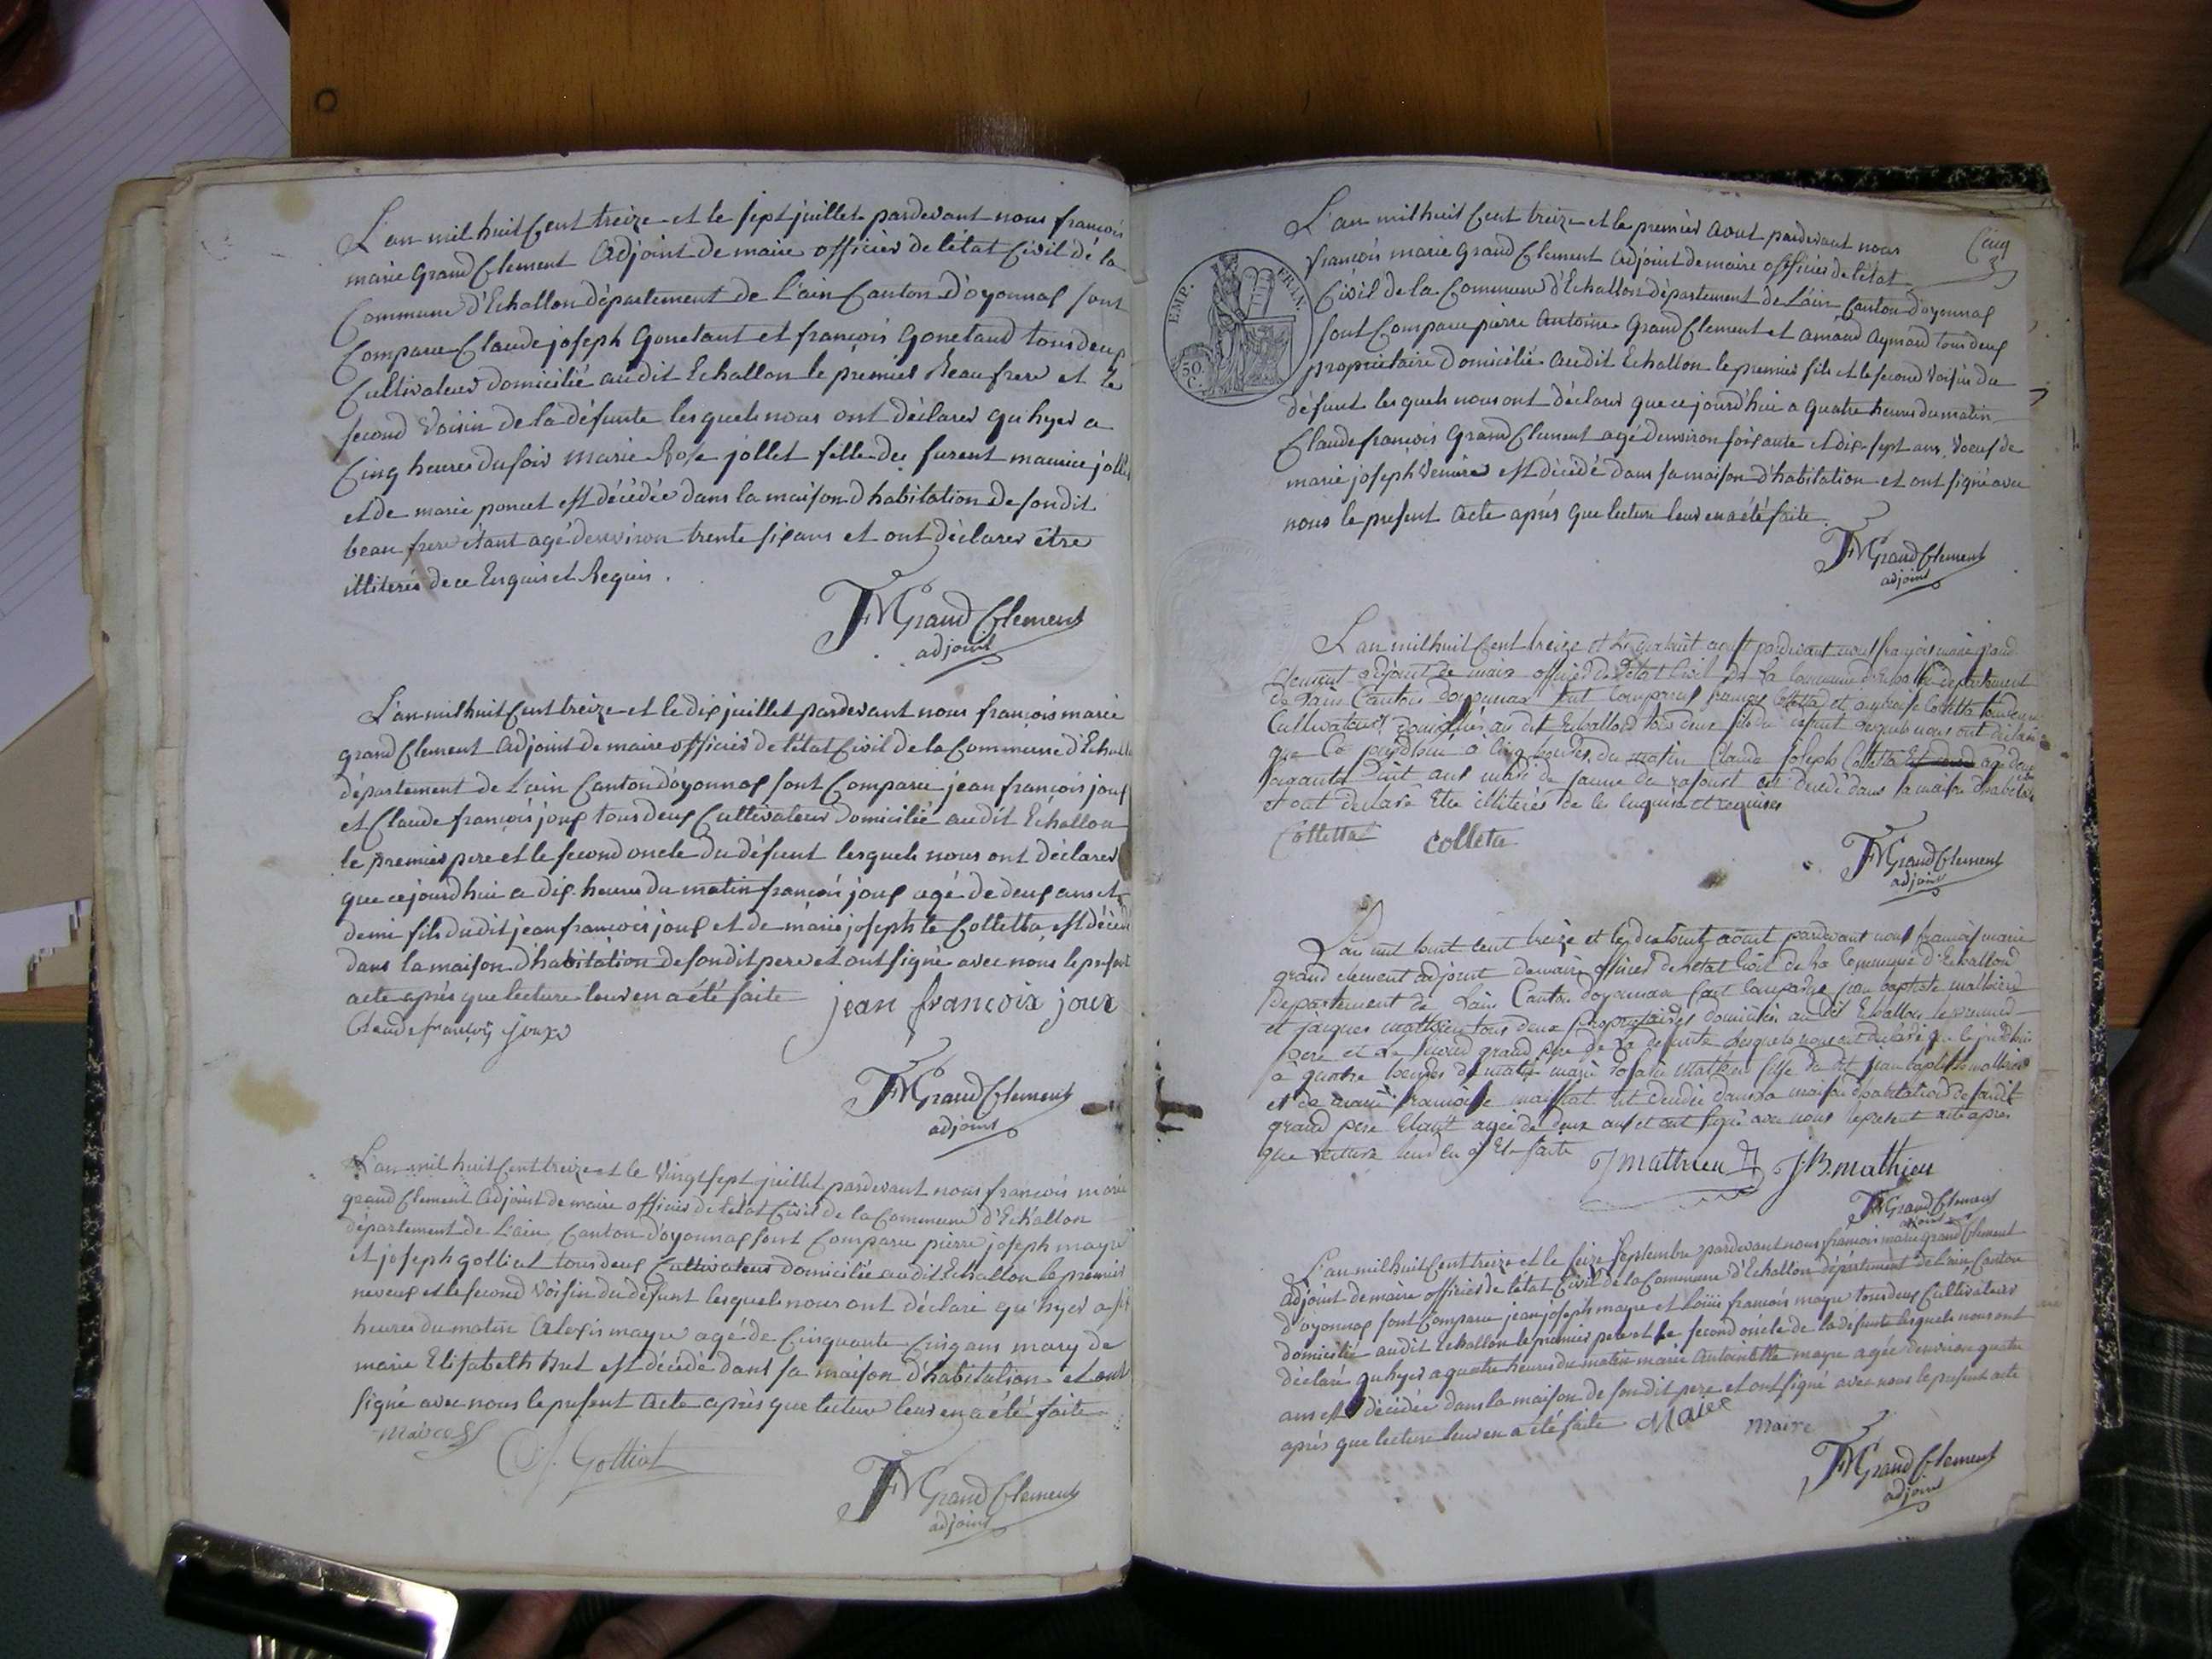 L'an mil huit Cent treize et le sept juillet pardevant nous francois
marie Grand Clement Adjoint de maire officier de l'état Civil de la
Commune d'Echallon département de L'ain Canton d'oyonnax sont
Comparu Claude joseph Gonetant et francois Gonetand tous deux
Cultivateur domicilié audit Echallon le prémier Beau frere et le
second Voisin de la défunte lesquels nous ont déclarer qu'hyer a
Cinq heures du soir marie Rose jollet fille de furent maurice jollet
et de marie poncet est décédée dans la maison d'habitation de sondit
beau frere étant agé d'environ trente six ans et ont déclarer être
illiterés de ce Enquis et Requis.
FMGrand Clement
adjoint
L'an mil huit Cent treize et le dix juillet pardevant nous francois marie
grand Clement Adjoint de maire officier de l'état Civil de la Commune d'Echallon
département de L'ain Canton d'oyonnax sont Comparu jean francois joux
et Claude francois joux tous deux Cultivateur domicilié audit Echallon
le premier pere et le second oncle du défunt lesquels nous ont déclarer
que cejourd'hui a dix heures du matin francois joux agé de deux ans et
demi fils dudit jean francois joux et de marie josephte Colletta est décédé
dans la maison d'habitation de sondit pere et ont signé avec nous le present
acte après que lecture leur en a été faite jean francoix joux
Claude francois joux
FMGrand Clement
adjoint
L'an mil huit Cent treize et le Vingt sept juillet pardevant nous francois marie
grand Clement Adjoint de maire officier de l'état Civil de la Commune d'Echallon
département de L'ain Canton d'oyonnax sont Comparu pierre joseph mayre
et joseph gottiet tous deux Cultivateur domicilié audit Echallon le premier
neveux et le second Voisin du défunt lesquels nous ont déclaré qu'hyer a six
heures du matin Alexis mayre agé de Cinquante Cinq ans mary de
marie Elisabeth est décédé dans sa maison d'habitation et ont
signé avec nous le present Acte après que lecture leur en a été faite
maire J. Gottiet
FMGrand Clement
adjoint
Cinq
L'an mil huit Cent treize et le premier Aout pardevant nous
francois marie Grand Clement Adjoint de maire officier de l'état
Civil de la Commune d'Echallon département de L'ain Canton d'oyonnax
sont Comparu pierre Antoine Grand Clement et Amand Aymard tous deux
proprietaire domicilié audit Echallon le premier fils et le second Voisin du
défunt lesquels nous ont déclarer que cejourd'hui a quatre heures du matin
Claude francois Grand Clement agé d'environ soixante et dix sept ans Voeuf de
marie joseph est décédé dans sa maison d'habitation et ont signé avec
nous le present Acte après que lecture leur en a été faite
EMP. FRAN.
50 C.
FMGrand Clement
adjoint
L'an mil huit Cent treize et le aoust pardevant nous françois marie grand
Clement adjoint de maire officier de l'état Civil de la Commune d'Echallon departement
de L'ain Canton doyonnax sont comparus françois Colletta et Colletta tous deux
Cultivateurs domiciliés au dit Echallon tous deux fils du defunt lesquels nous ont declaré
que ce jourdhui à Cinq heures du matin Claude Joseph Colletta agé de
soixante huit ans mari de jeanne est decedé dans sa maison d'habitation
et ont declaré être illiterés de ce enquis et requises
Colletta colleta
FMGrand Clement
adjoint
L'an mil huit cent treize et le aoust pardevant nous francois marie
grand clement adjoint de maire officier de l'etat Civil de la Commune d'Echallon
departement de Lain Canton doyonnax sont comparus jean baptiste mathieu
et jacques mathieu tous deux proprietaires domiciliés au dit Echallon le premier
pere et le second grand pere de la defunte lesquels nous ont declaré que ce jourdhui
à quatre heures du matin marie rosalie mathieu fille du dit jean baptiste mathieu
et de marie francoise est decedée dans la maison d'habitation de sondit
grand pere Etant agée de deux ans et ont signé avec nous le present acte apres
que lecture leur en a été faite J mathieu J.B. mathieu
FMGrand Clement
adjoint
L'an mil huit Cent treize et le seize septembre pardevant nous francois marie grand Clement
adjoint de maire officier de l'état Civil de la Commune d'Echallon département de L'ain Canton
d'oyonnax sont Comparu jean joseph mayre et Louis francois mayre tous deux Cultivateur
domicilié audit Echallon le premier pere et le second oncle de la défunte lesquels nous ont
declaré qu'hyer a quatre heures du matin marie Antoinette mayre agée d'environ quatre
ans est décédée dans la maison de sondit pere et ont signé avec nous le present acte
après que lecture leur en a été faite Maire maire
FMGrand Clement
adjoint